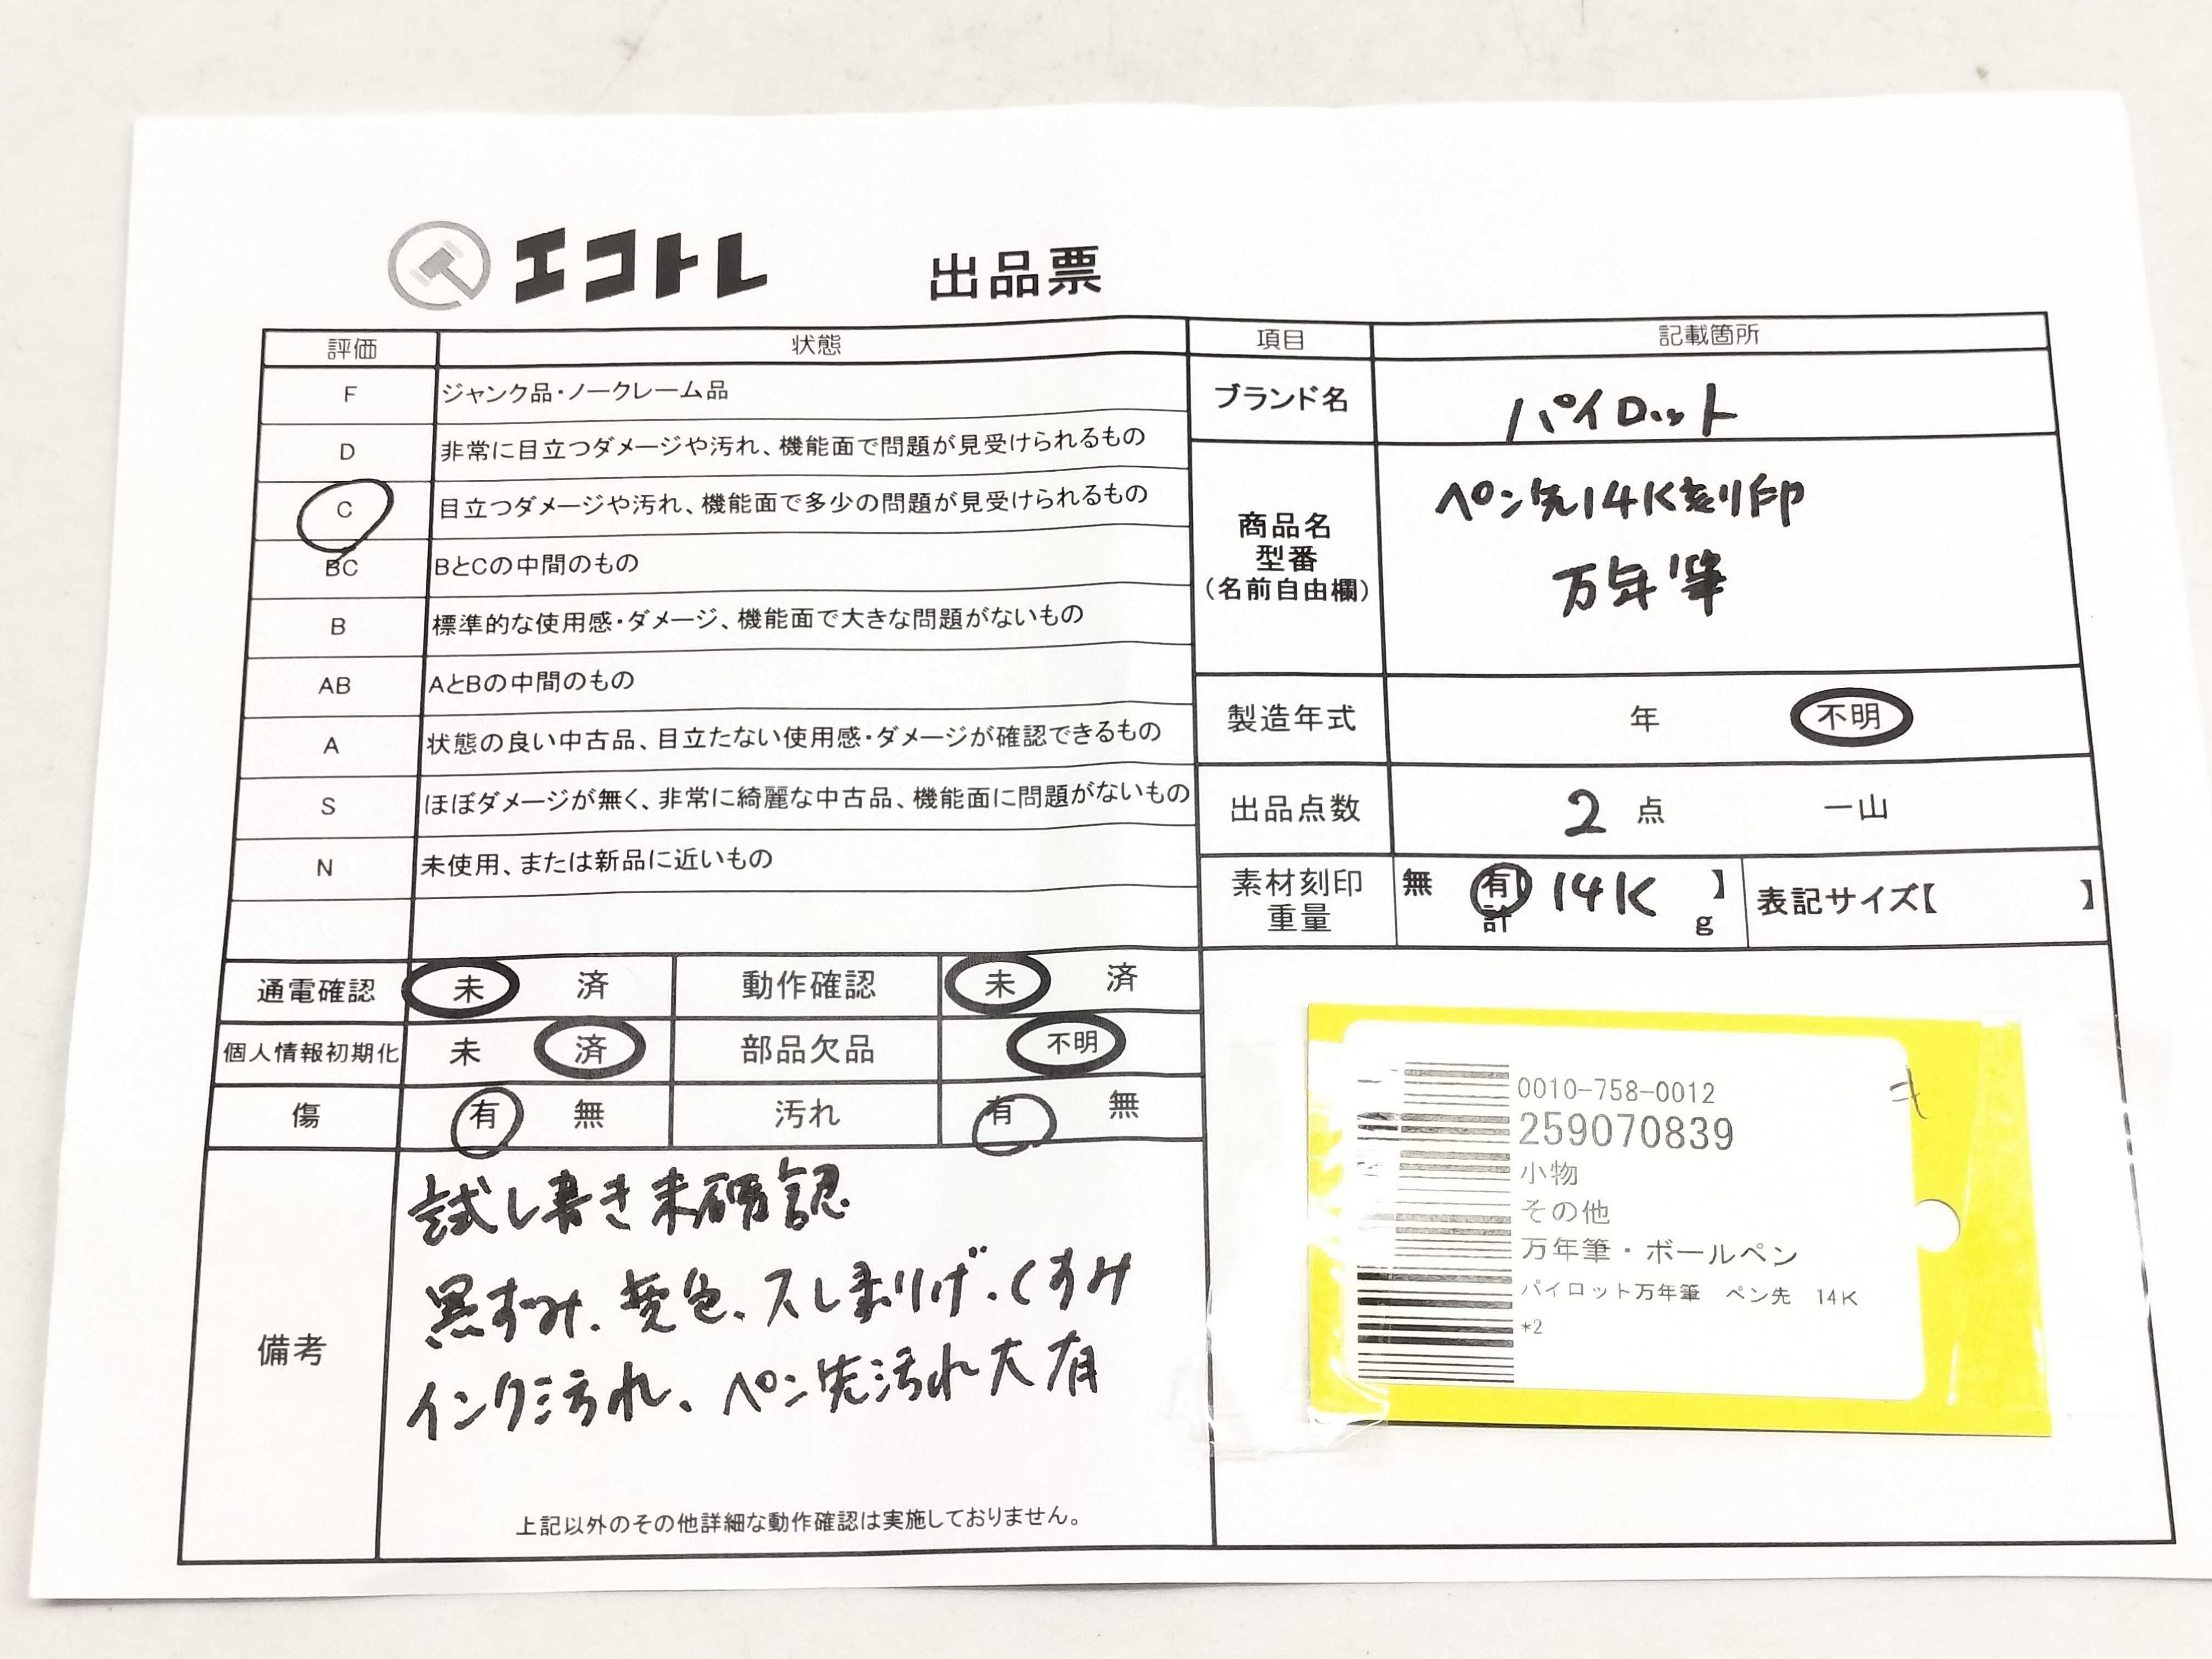 エコトレ 出品票
評価 状態
F ジャンク品・ノークレーム品
D 非常に目立つダメージや汚れ、機能面で問題が見受けられるもの
C 目立つダメージや汚れ、機能面で多少の問題が見受けられるもの
BC BとCの中間のもの
B 標準的な使用感・ダメージ、機能面で大きな問題がないもの
AB AとBの中間のもの
A 状態の良い中古品、目立たない使用感・ダメージが確認できるもの
S ほぼダメージが無く、非常に綺麗な中古品、機能面に問題がないもの
N 未使用、または新品に近いもの
通電確認 未 済 動作確認 未 済
個人情報初期化 未 済 部品欠品 不明
傷 有 無 汚れ 有 無
備考
試し書き未確認
黒ずみ、変色、スレ、くすみ
インク汚れ、ペン先汚れ大有
上記以外のその他詳細な動作確認は実施しておりません。
項目 記載箇所
ブランド名 パイロット
商品名
型番
(名前自由欄)
ペン先14K刻印
万年筆
製造年式 年 不明
出品点数 2 点 一山
素材刻印 無 有 14K 】
重量 計 g
表記サイズ【 】
0010-758-0012
259070839
小物
その他
万年筆・ボールペン
パイロット万年筆 ペン先 14K
*2